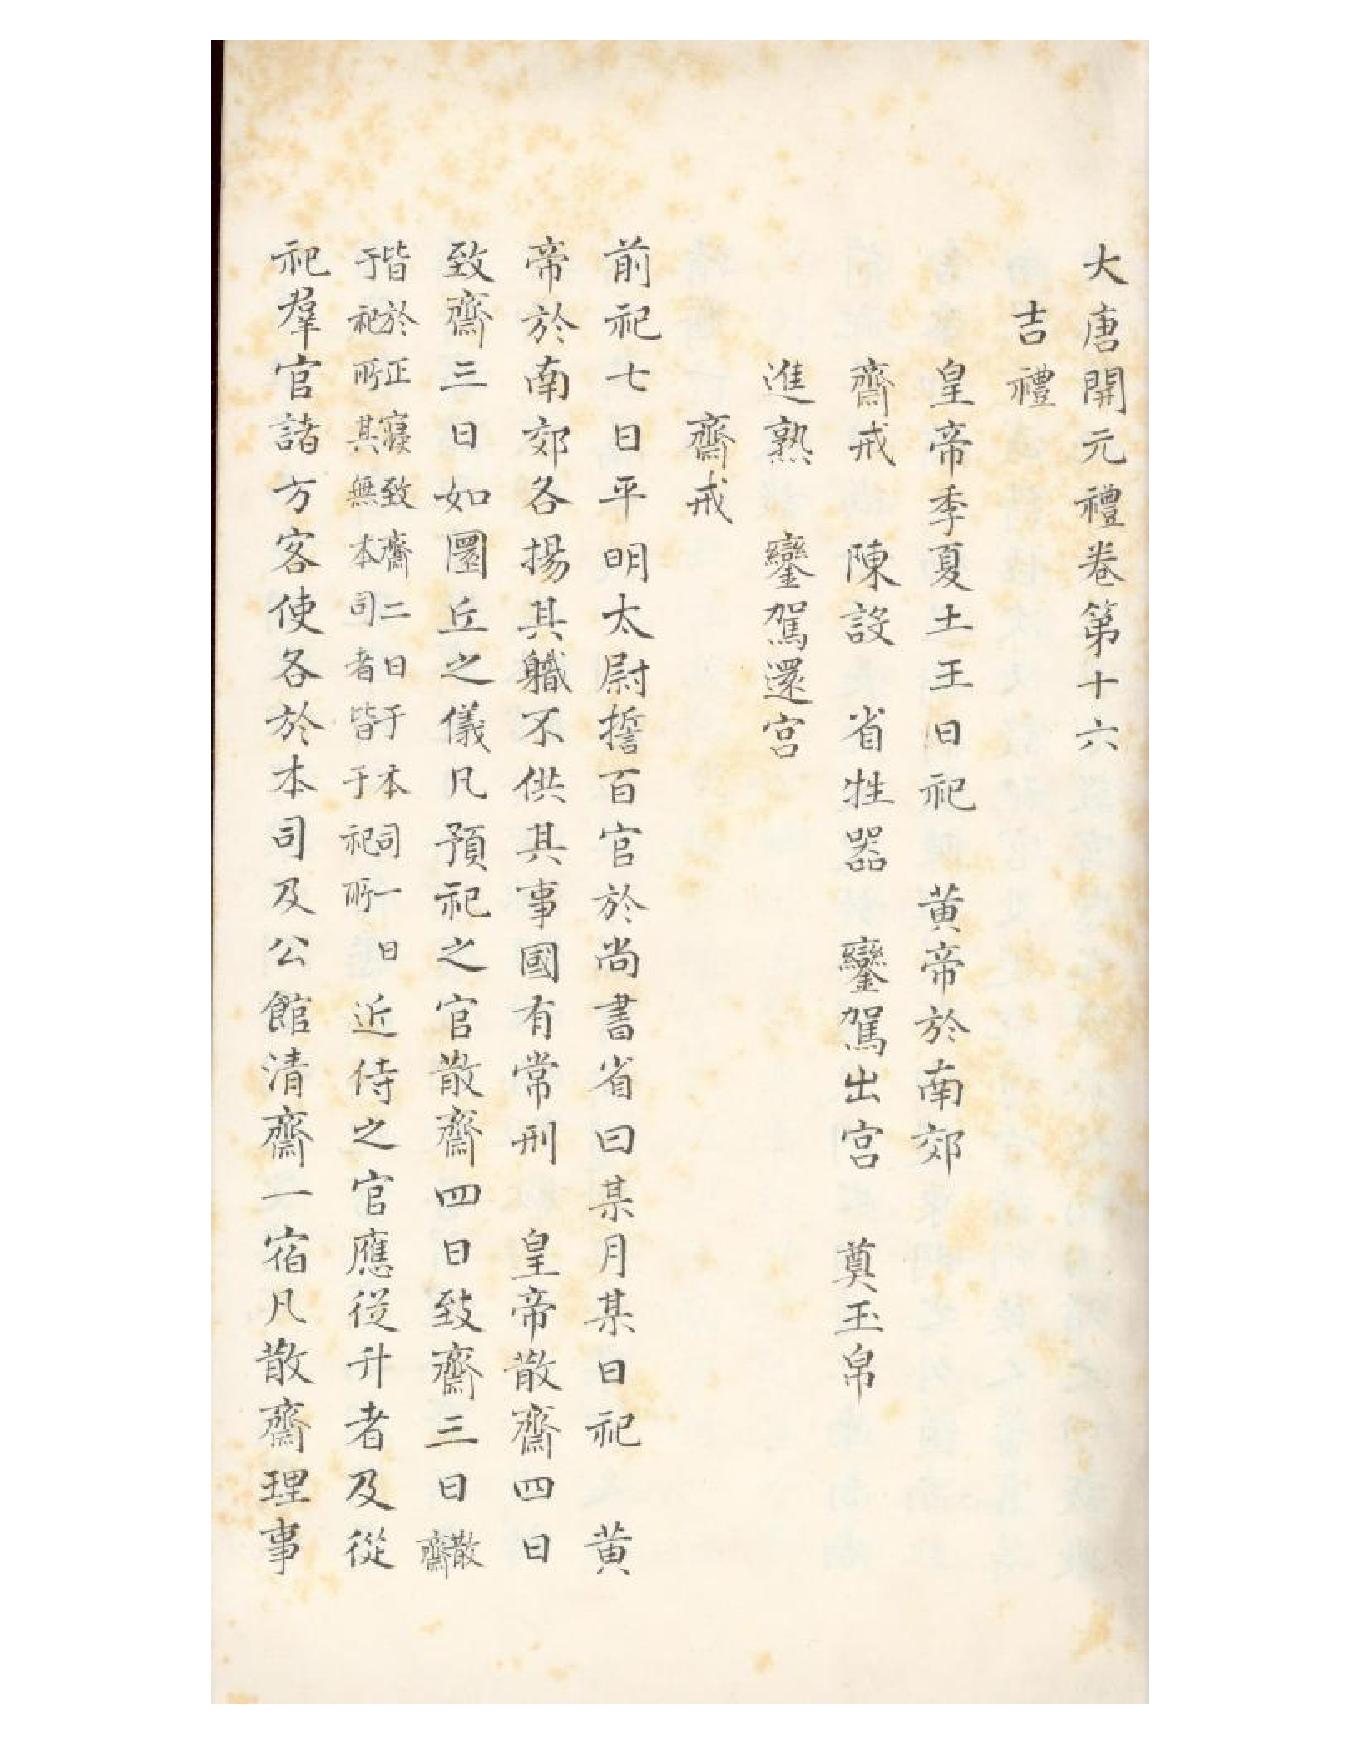 大唐開元禮卷第十六
吉禮
皇帝季夏土王日祀 黄帝於南郊
齋戒 陳設 省牲器 鑾駕出宫 奠玉帛
進熟 鑾駕還宫
齋戒
前祀七日平明太尉誓百官於尚書省曰某月某日祀 黄
帝於南郊各揚其職不供其事國有常刑 皇帝散齋四日
致齋三日如圜丘之儀凡預祀之官散齋四日致齋三日散齋
皆於正寝致齋二日于本司一日
于祀所其無本司者皆于祀所
近侍之官應從升者及從
祀羣官諸方客使各於本司及公館清齋一宿凡散齋理事